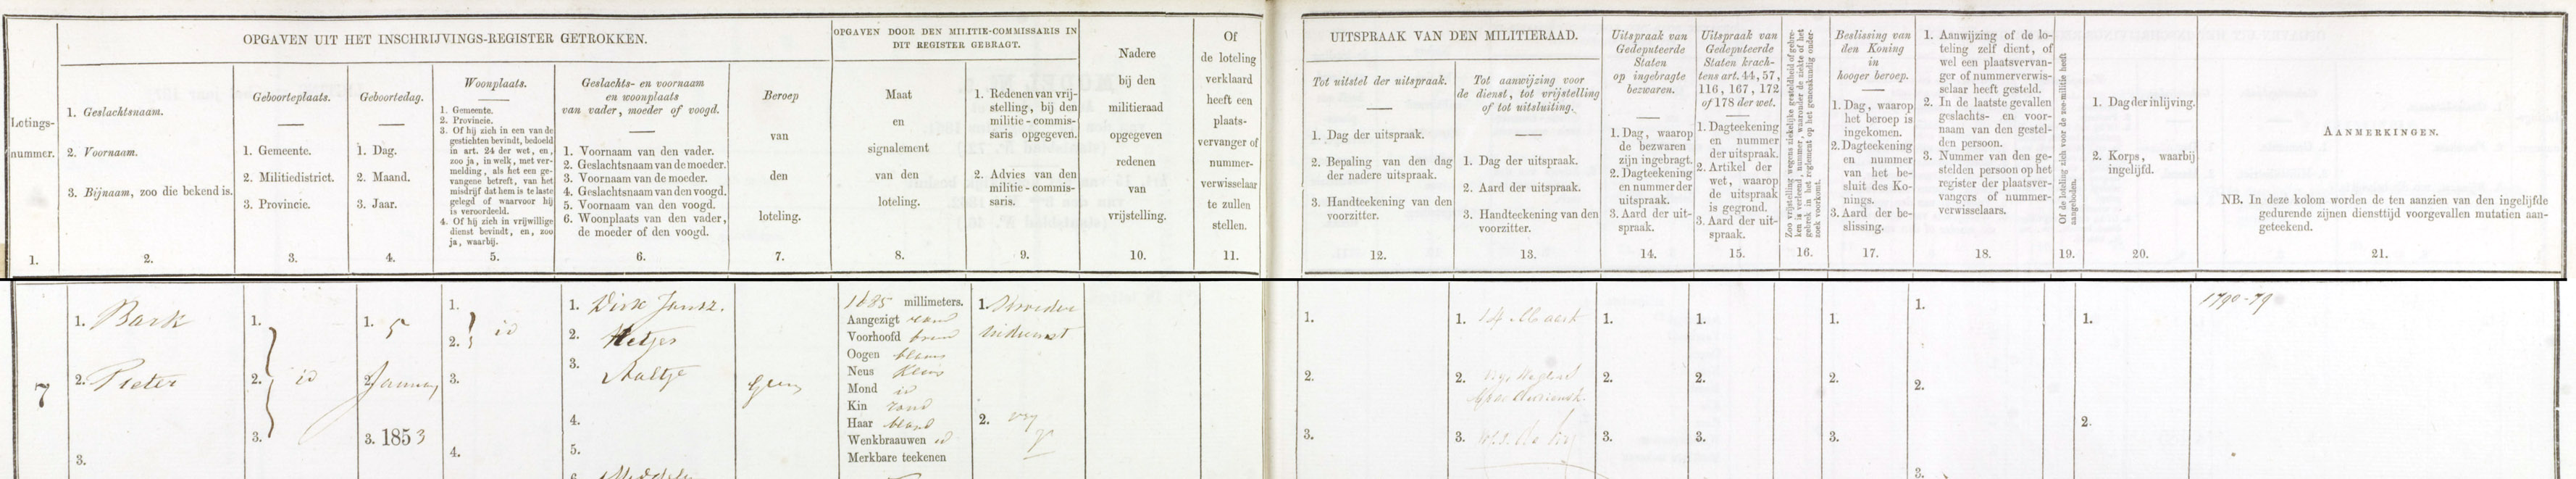 OPGAVEN UIT HET INSCHRIJVINGS-REGISTER GETROKKEN.
OPGAVEN DOOR DEN MILITIE-COMMISSARIS IN
DIT REGISTER GEBRAGT.
Lotings-
nummer.
1.
1. Geslachtsnaam.
2. Voornaam.
3. Bijnaam, zoo die bekend is.
2.
Geboorteplaats.
1. Gemeente.
2. Militiedistrict.
3. Provincie.
3.
Geboortedag.
1. Dag.
2. Maand.
3. Jaar.
4.
Woonplaats.
1. Gemeente.
2. Provincie.
3. Of hij zich in een van de
gestichten bevindt, bedoeld
in art. 24 der wet, en,
zoo ja, in welk, met ver-
melding, als het een ge-
vangene betreft, van het
misdrijf dat hem is te laste
gelegd of waarvoor hij
is veroordeeld.
4. Of hij zich in vrijwillige
dienst bevindt, en, zoo
ja, waarbij.
5.
Geslachts- en voornaam
en woonplaats
van vader, moeder of voogd.
1. Voornaam van den vader.
2. Geslachtsnaam van de moeder.
3. Voornaam van de moeder.
4. Geslachtsnaam van den voogd.
5. Voornaam van den voogd.
6. Woonplaats van den vader,
de moeder of den voogd.
6.
Beroep
van
den
loteling.
7.
Maat
en
signalement
van den
loteling.
8.
1. Redenen van vrij-
stelling, bij den
militie-commis-
saris opgegeven.
2. Advies van den
militie-commis-
saris.
9.
Nadere
bij den
militieraad
opgegeven
redenen
van
vrijstelling.
10.
Of
de loteling
verklaard
heeft een
plaats-
vervanger of
nummer-
verwisselaar
te zullen
stellen.
11.
UITSPRAAK VAN DEN MILITIERAAD.
Tot uitstel der uitspraak.
1. Dag der uitspraak.
2. Bepaling van den dag
der nadere uitspraak.
3. Handteekening van den
voorzitter.
12.
Tot aanwijzing voor
de dienst, tot vrijstelling
of tot uitsluiting.
1. Dag der uitspraak.
2. Aard der uitspraak.
3. Handteekening van den
voorzitter.
13.
Uitspraak van
Gedeputeerde
Staten
op ingebragte
bezwaren.
1. Dag, waarop
de bezwaren
zijn ingebragt.
2. Dagteekening
en nummer der
uitspraak.
3. Aard der uit-
spraak.
14.
Uitspraak van
Gedeputeerde
Staten krach-
tens art. 44, 57,
116, 167, 172
of 178 der wet.
1. Dagteekening
en nummer
der uitspraak.
2. Artikel der
wet, waarop
de uitspraak
is gegrond.
3. Aard der uit-
spraak.
15.
Zoo vrijstelling wegens ziekelijke gesteldheid of gebre-
ken is verleend, nummer, waaronder de ziekte of het
gebrek in het reglement op het geneeskundig onder-
zoek voorkomt.
16.
Beslissing van
den Koning
in
hooger beroep.
1. Dag, waarop
het beroep is
ingekomen.
2. Dagteekening
en nummer
van het be-
sluit des Ko-
nings.
3. Aard der be-
slissing.
17.
1. Aanwijzing of de lo-
teling zelf dient, of
wel een plaatsvervan-
ger of nummerverwis-
selaar heeft gesteld.
2. In de laatste gevallen
geslachts- en voor-
naam van den gestel-
den persoon.
3. Nummer van den ge-
stelden persoon op het
register der plaatsver-
vangers of nummer-
verwisselaars.
18.
Of de loteling zich voor de zee-militie heeft
aangeboden.
19.
1. Dag der inlijving.
2. Korps, waarbij
ingelijfd.
20.
AANMERKINGEN.
NB. In deze kolom worden de ten aanzien van den ingelijfde
gedurende zijnen diensttijd voorgevallen mutatien aan-
geteekend.
21.
7
1. Bark
2. Pieter
3.
1.
2. id
3.
1. 5
2. January
3. 1853
1.
2. id
3.
4.
1. Dirk Jansz.
2. Hetjes
3. Aaltje
4.
5.
6.
geen
1625 millimeters.
Aangezigt rond
Voorhoofd breed
Oogen blauw
Neus klein
Mond id
Kin rond
Haar blond
Wenkbraauwen id
Merkbare teekenen
1. Broeder
indienst
2. vrij
1.
2.
3.
1. 14 Maart
2.
3.
1.
2.
3.
1.
2.
3.
1.
2.
3.
1.
2.
3.
1.
2.
1790-79